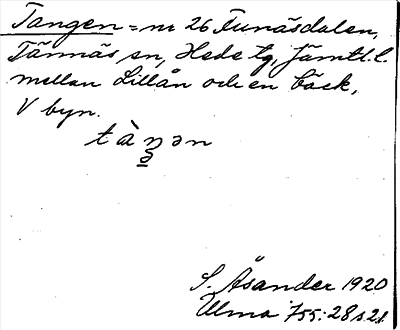 Tangen = nr 26 Funäsdalen,
Tännäs sn, Hede tg, Jämtl. l.
mellan Lillån och en bäck,
V byn.
tàŋ̠ən
S. Åsander 1920
Ulma 755:28 s. 21